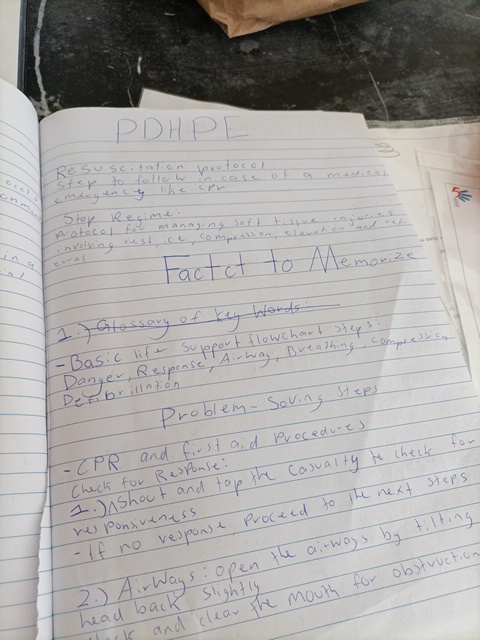 PDHPE
Resuscitation protocol:
Step to follow in case of a medical
emergency like cpr
Stop Regime:
Protocol for managing soft tissue injuries
involving rest, ice, compression, elevation and ref
erral
Factct to Memorize
1.) Glossary of key Words:
- Basic life support flowchart steps:
Danger, Response, Airway, Breathing, compression
Defibrillation
Problem-Soving Steps
- CPR and first aid Procedures
Check for Response:
1.) Shout and tap the Casualty to check for
responsiveness
- If no response, proceed to the next steps
2.) AirWays: open the airways by tilting
head back slightly
and clear the mouth for obstruction